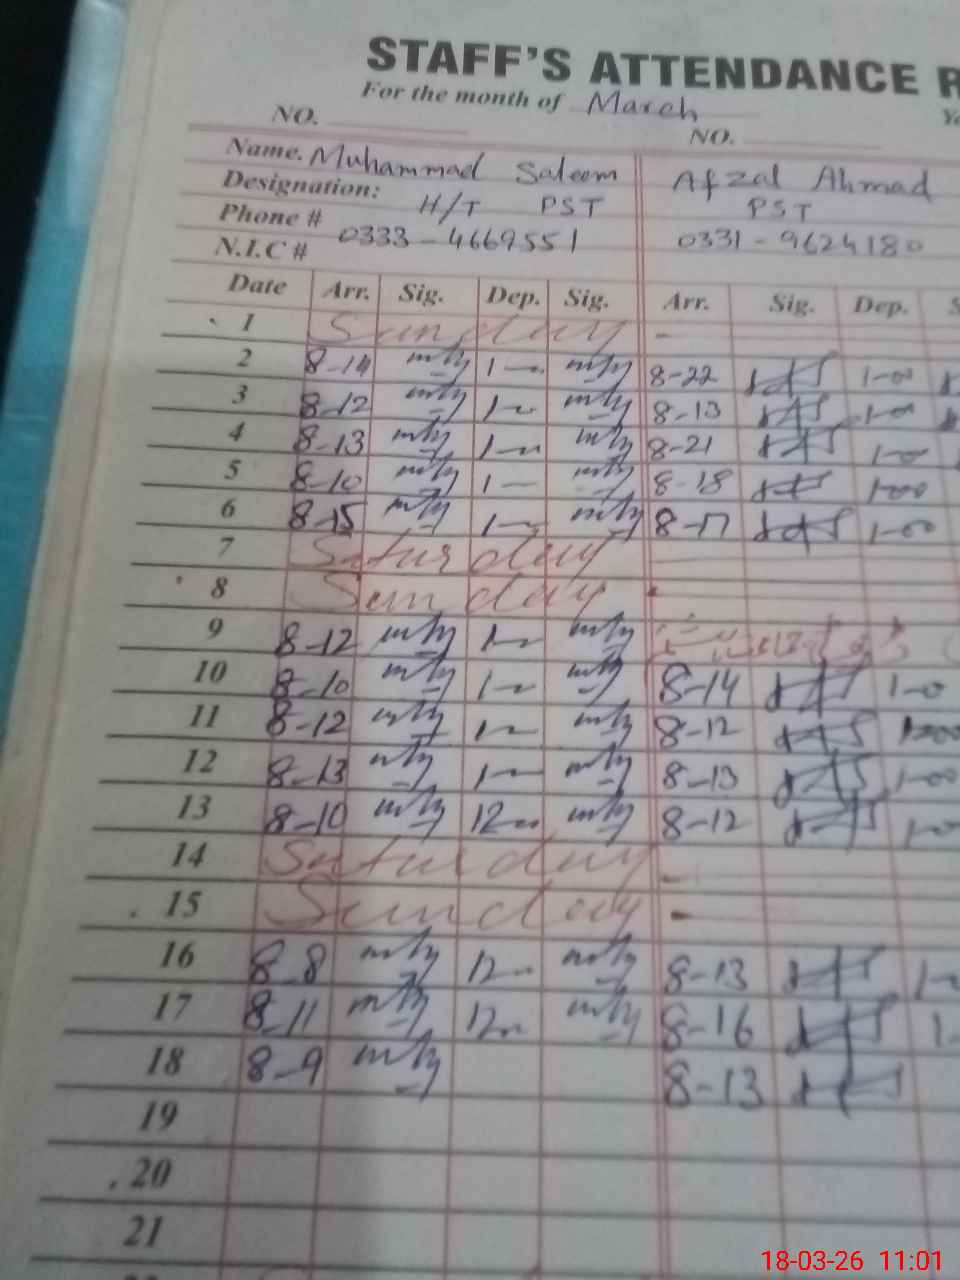 STAFF'S ATTENDANCE R
For the month of March
NO. NO.
Name. Muhammad Saleem Afzal Ahmad
Designation: H/T PST PST
Phone # 0333-4669551 0331-9624180
N.I.C #
Date Arr. Sig. Dep. Sig. Arr. Sig. Dep. S
1 Sunday -
2 8-14 1- 8-22 1-00
3 8-12 1- 8-13 1-00
4 8-13 1- 8-21 1-00
5 8-10 1- 8-18 1-00
6 8-15 1- 8-17 1-00
7 Saturday
8 Sunday
9 8-12 1-
10 8-10 1- 8-14 1-0
11 8-12 1- 8-12 1-00
12 8-13 1- 8-13 1-00
13 8-10 12- 8-12 1-0
14 Saturday -
15 Sunday -
16 8-8 12- 8-13 1-
17 8-11 12- 8-16 1-
18 8-9 8-13
19
20
21
18-03-26 11:01